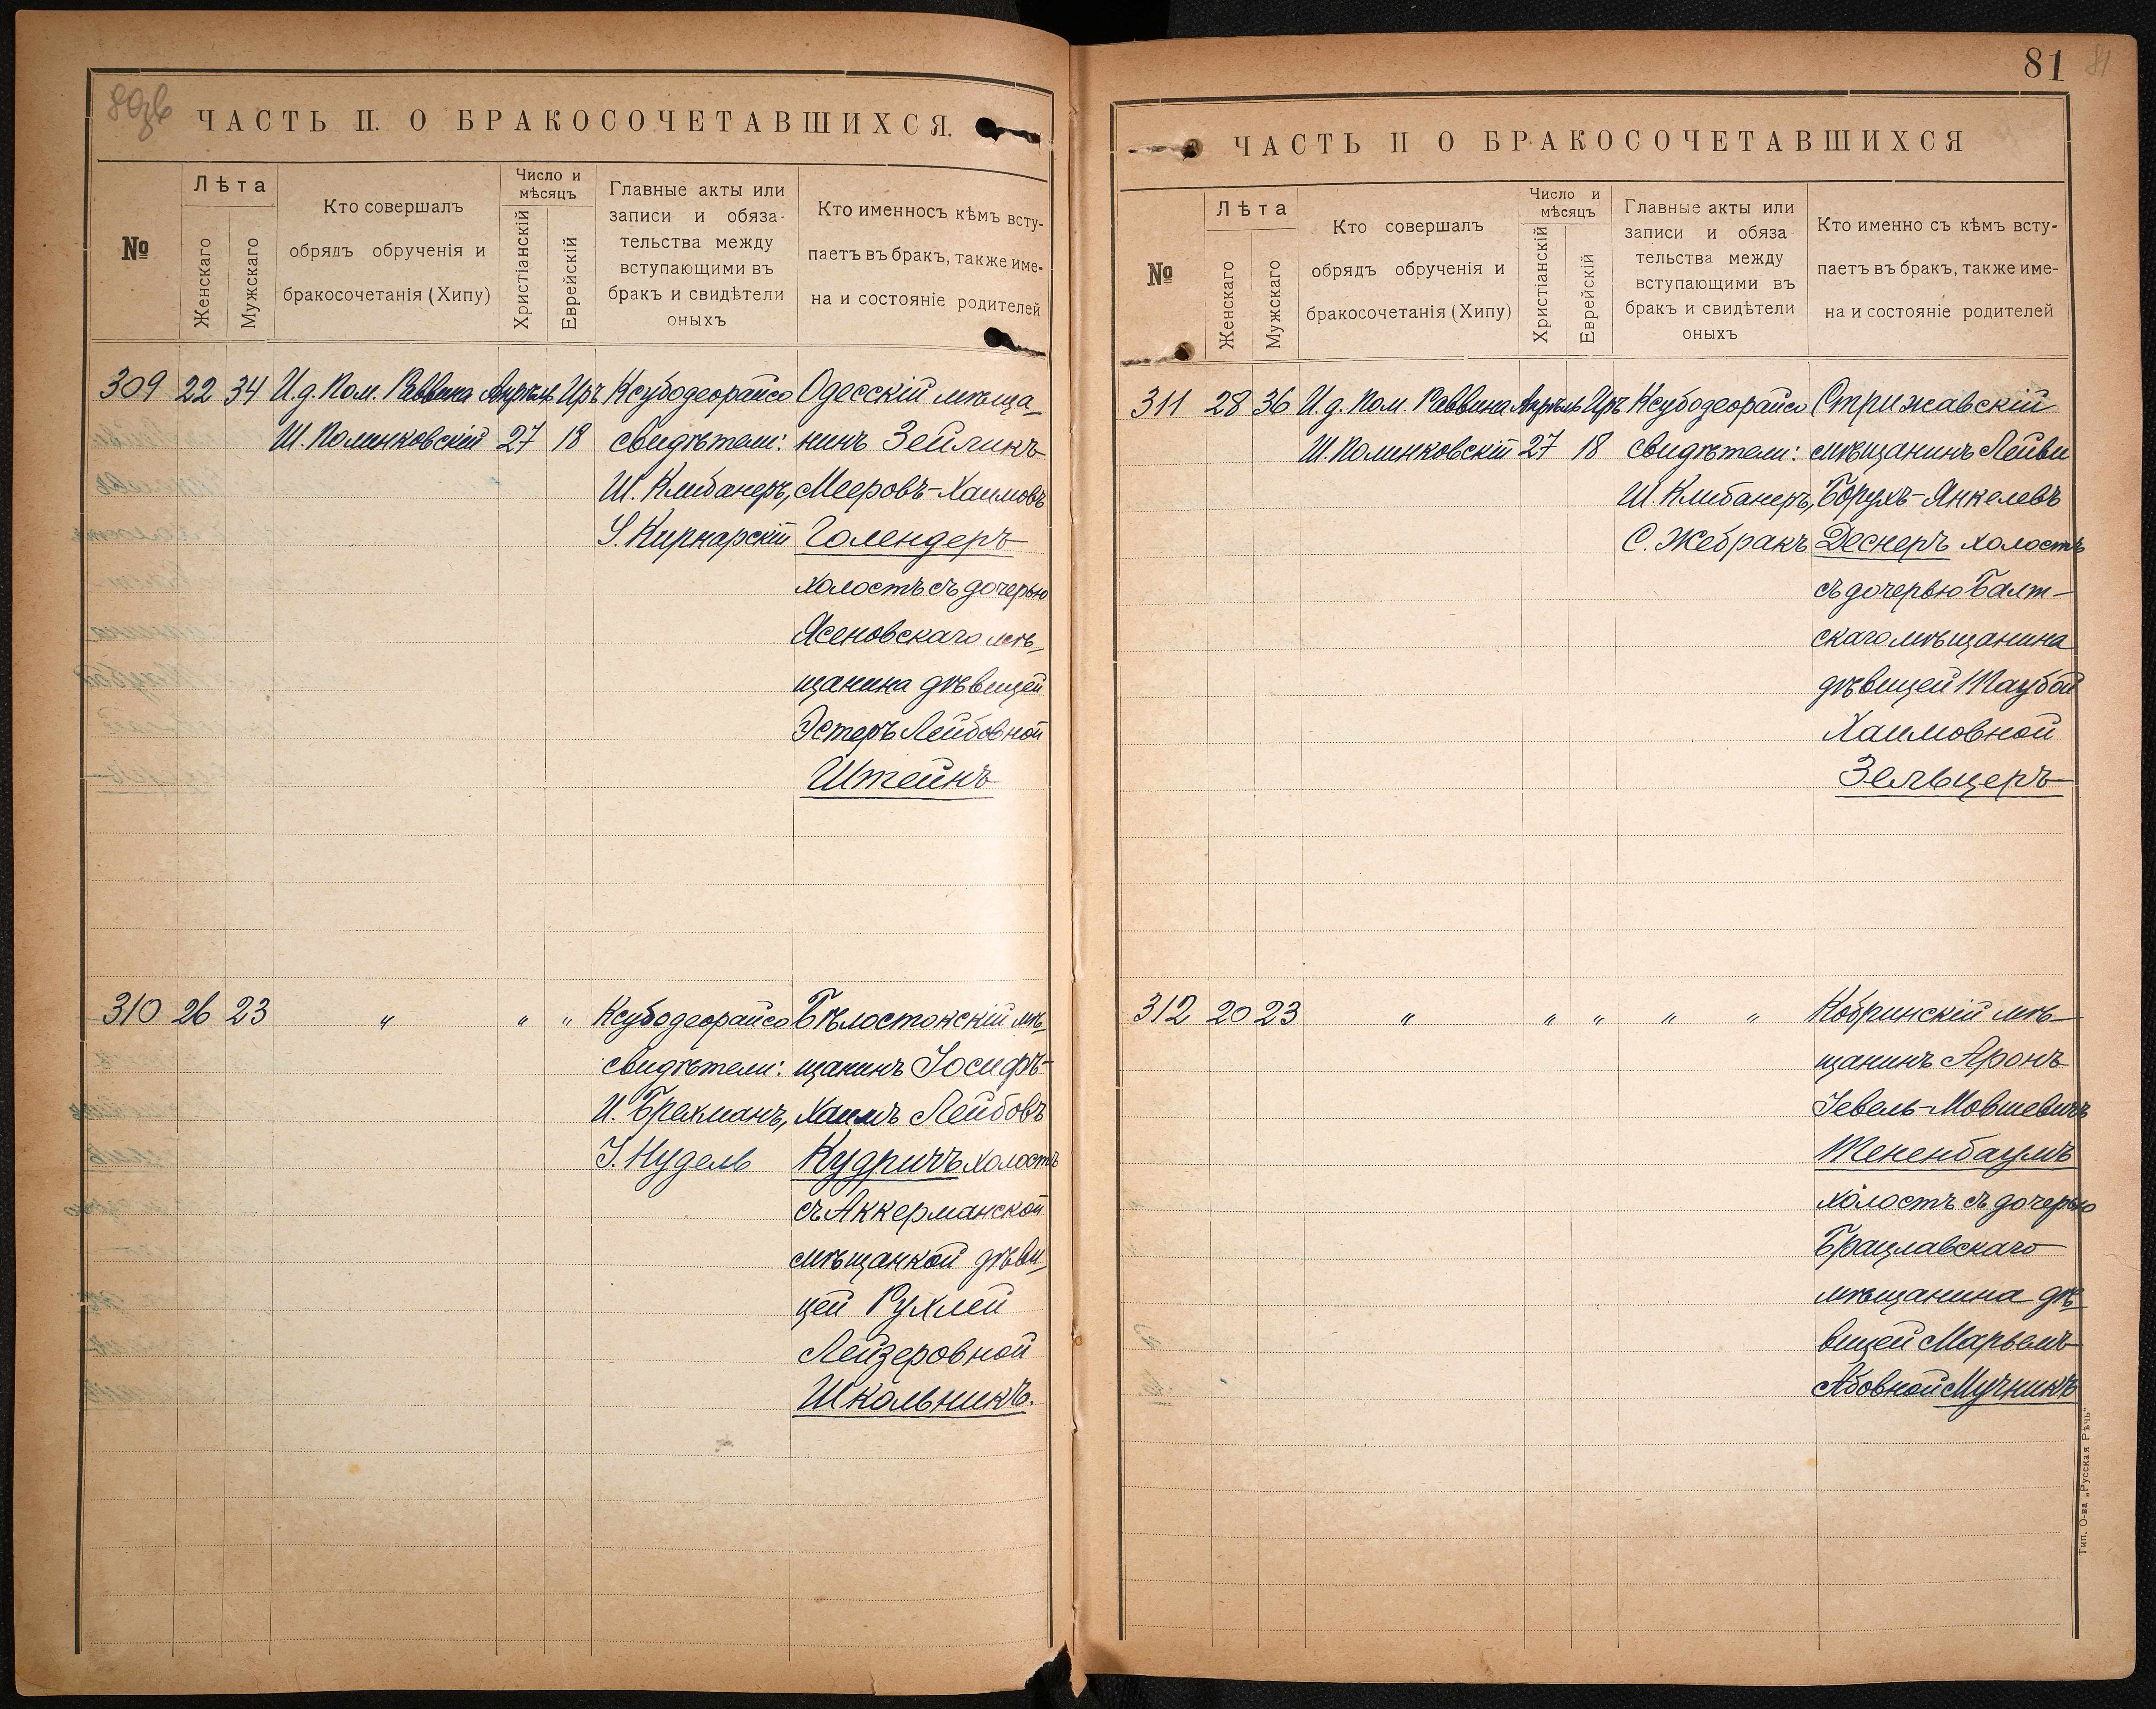 ЧАСТЬ II. О БРАКОСОЧЕТАВШИХСЯ.
№
Лѣта
Женскаго
Мужскаго
Кто совершалъ
обрядъ обрученія и
бракосочетанія (Хипу)
Число и
мѣсяцъ
Христіанскій
Еврейскій
Главные акты или
записи и обяза-
тельства между
вступающими въ
бракъ и свидѣтели
оныхъ
Кто именносъ кѣмъ всту-
паетъ въ бракъ, также име-
на и состояніе родителей
309 22 34 И.д. Пом. Раввина Апрѣль Иръ Ксубодеорайсо Одесскій мѣща-
Ш. Полинковскій 27 18 свидѣтели: нинъ Зейликъ
Ш. Клибанеръ, Мееровъ-Хаимовъ
І. Кирнарскій Голендеръ
холостъ съ дочерью
Ясеновскаго мѣ-
щанина дѣвицей
Эстеръ Лейбовной
Штейнъ
310 26 23 " " " Ксубодеорайсо Бѣлостокскій мѣ-
свидѣтели: щанинъ Іосифъ-
И. Брахманъ, Хаимъ Лейбовъ
І. Нудель Кудричъ холостъ
съ Аккерманской
мѣщанкой дѣви-
цей Рухлей
Лейзеровной
Школьникъ.
81
81
ЧАСТЬ II О БРАКОСОЧЕТАВШИХСЯ
№
Лѣта
Женскаго
Мужскаго
Кто совершалъ
обрядъ обрученія и
бракосочетанія (Хипу)
Число и
мѣсяцъ
Христіанскій
Еврейскій
Главные акты или
записи и обяза-
тельства между
вступающими въ
бракъ и свидѣтели
оныхъ
Кто именно съ кѣмъ всту-
паетъ въ бракъ, также име-
на и состояніе родителей
311 28 36 И.д. Пом. Раввина Апрѣль Иръ Ксубодеорайсо Стрижавскій
Ш. Полинковскій 27 18 свидѣтели: мѣщанинъ Лейви
Ш. Клибанеръ, Борухъ-Янкелевъ
С. Жебракъ Деснеръ холостъ
съ дочерью Балт-
скаго мѣщанина
дѣвицей Таубой
Хаимовной
Зельцеръ
312 20 23 " " " " " Кобринскій мѣ-
щанинъ Аронъ
Іевель-Мовшевичъ
Тененбаумъ
холостъ съ дочерью
Брацлавскаго
мѣщанина дѣ-
вицей Марьемъ
Абовной Мучникъ
Тип. О-ва „Русская Рѣчь"